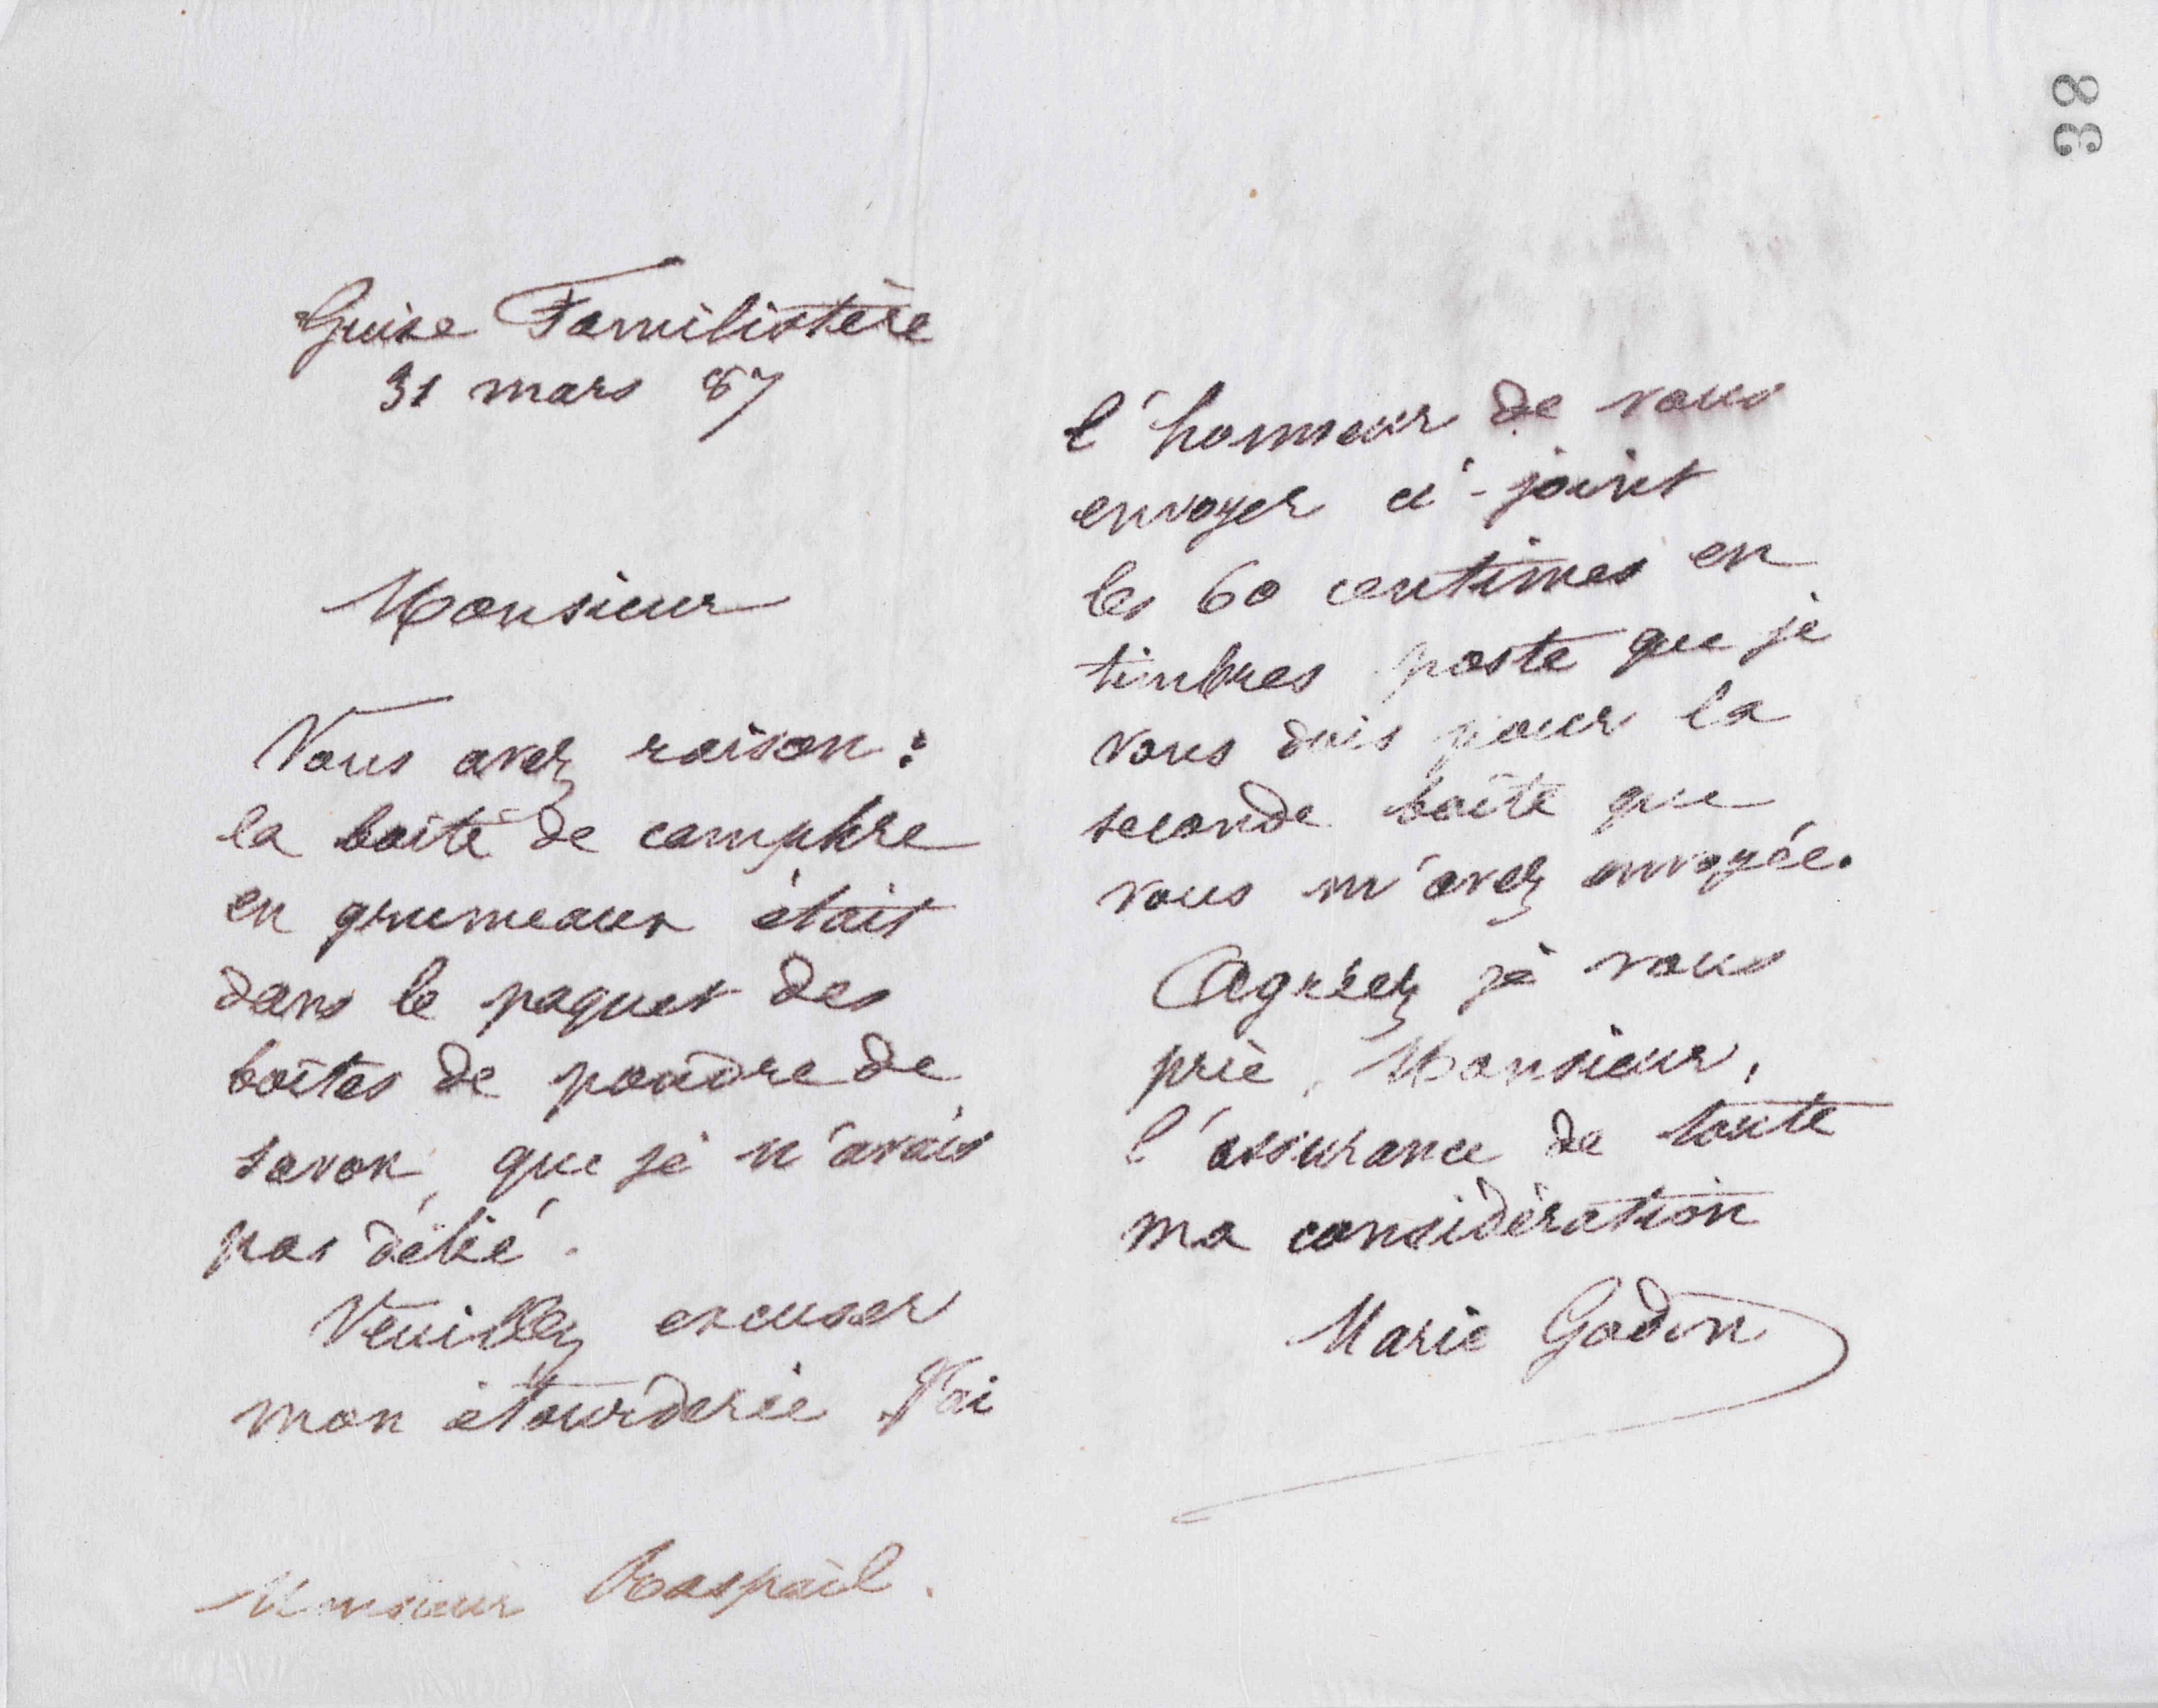 38
Guise Familistère
31 mars 87
Monsieur
Vous avez raison :
la boîte de camphre
en grumeaux était
dans le paquet des
boîtes de poudre de
savon, que je n'avais
pas délié.
Veuillez excuser
mon étourderie J'ai
Monsieur Raspail.
l'honneur de vous
envoyer ci-joint
les 60 centimes en
timbres poste que je
vous dois pour la
seconde boîte que
vous m'avez envoyée.
Agréez je vous
prie, Monsieur,
l'assurance de toute
ma considération
Marie Godin